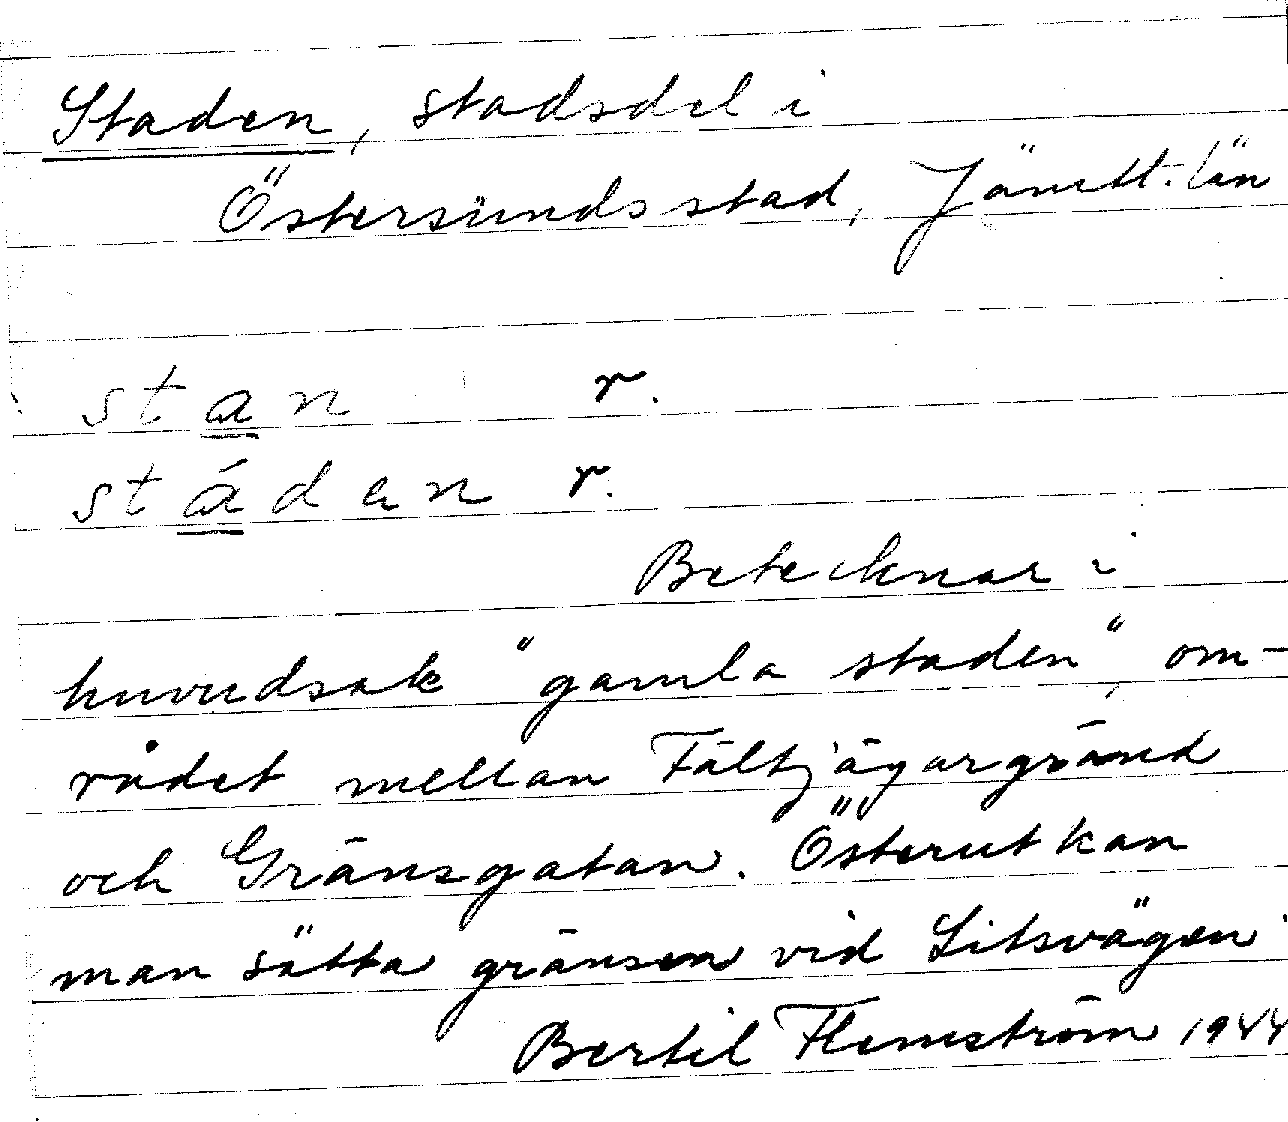 Staden, stadsdel i
Östersunds stad, Jämtl. län
stan r.
stáden r.
Betecknar i
huvudsak "gamla staden", om-
rådet mellan Fältjägargränd
och Gränsgatan. Österut kan
man sätta gränsen vid Litsvägen.
Bertil Flemström 1944